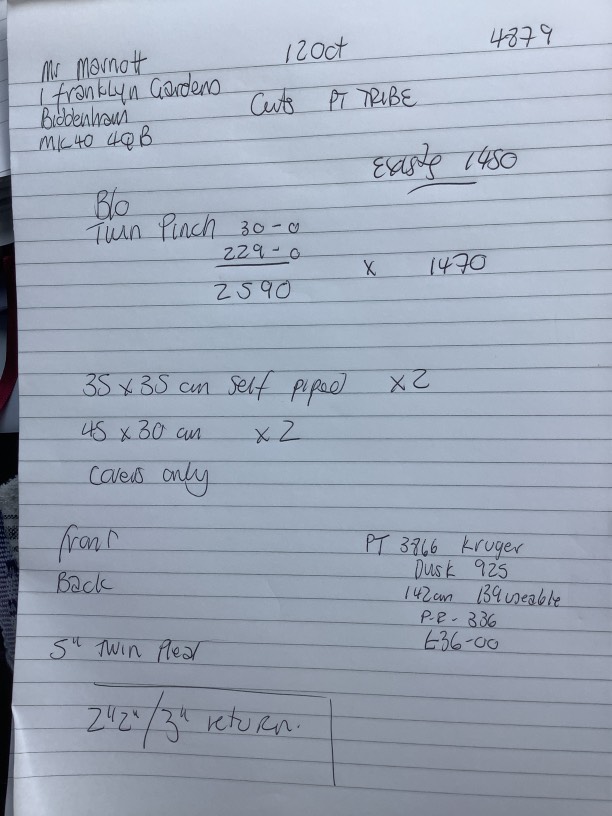 12 Oct 4879
Mr Marriott
1 Franklyn Gardens
Biddenham
MK40 4QB
Curts PT TRIBE
1450
B/o
Twin Pinch 30-0
229-0
2590 x 1470
35 x 35 cm self piped x2
45 x 30 cm x2
Covers only
front
Back
PT 3866 Kruger
Dusk 925
142cm 139 useable
P-R-336
£36-00
5" Twin Pleat
2"2"/3" return.